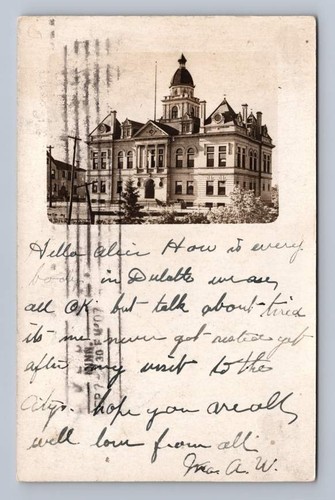 Hello Alice How is every
body in Duluth we are
all OK but talk about tired
its me never got rested yet
after my visit to the
citys. hope you are all
well love from all
Mrs A. W.
MINN.
30